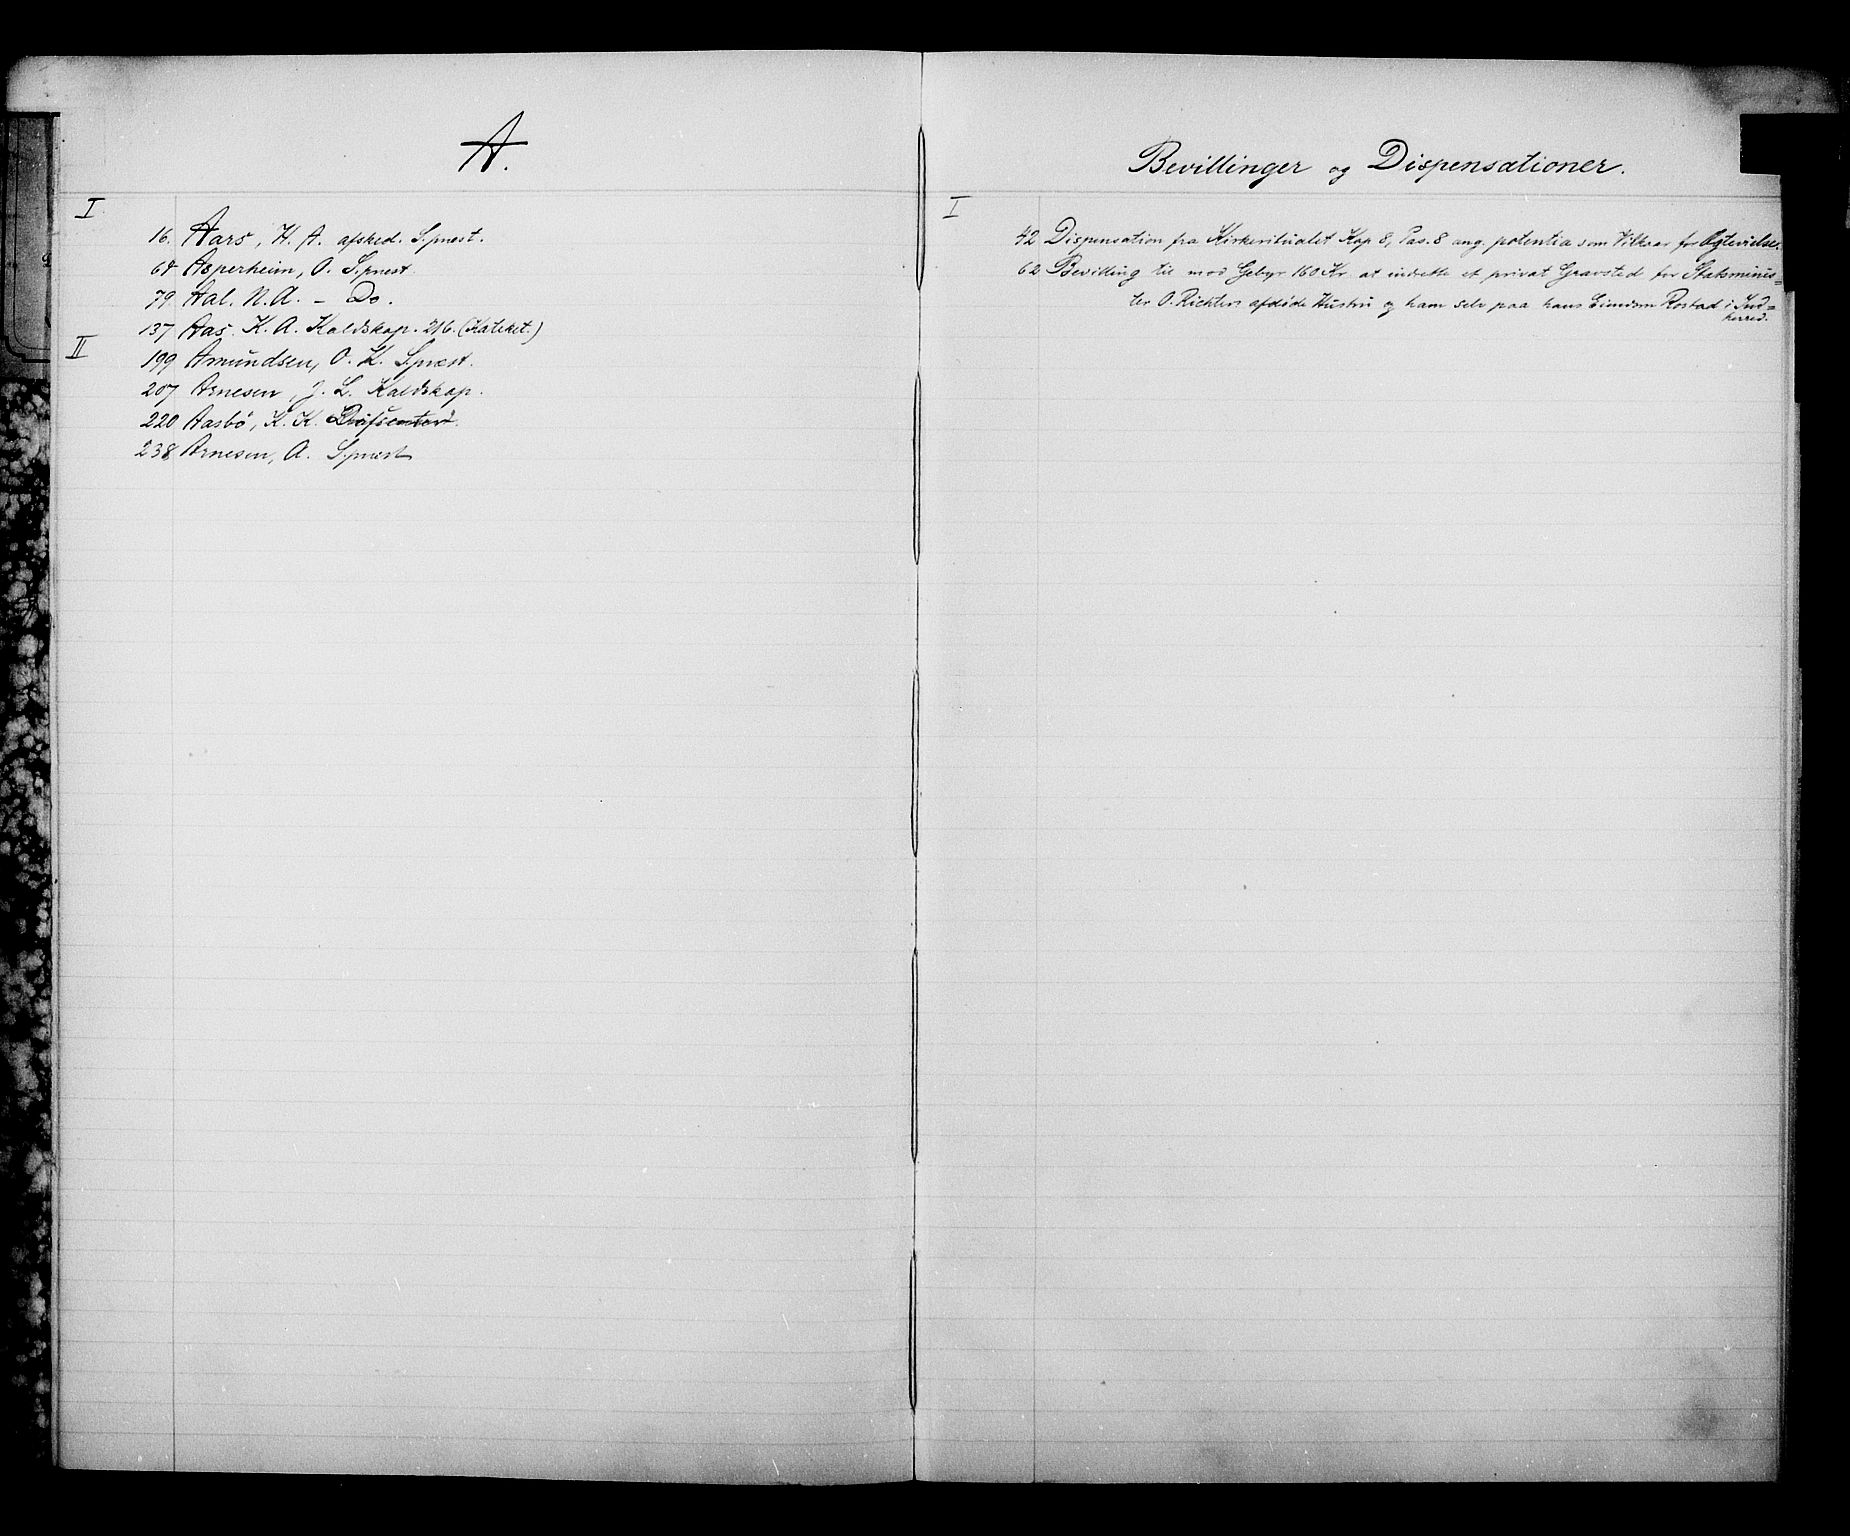 A.
I
16. Aars, H. A. afsked. S.prest.
64 Asperheim, O. S.prest.
79 Aal. N. A. – Do.
137 Aas. K. A. Kaldskap. 2/6. (Kateket.)
II
199 Amundsen, O. K. S.prest.
207 Arnesen, J. L. Kaldskap.
220 Aasbö, K. K.
238 Arnesen, A. S.prest
Bevillinger og Dispensationer.
I
42 Dispensation fra Kirkeritualet Kap 8, Pas. 8 ang. potentia som Vilkaar for Ægtevielse.
62 Bevilling til mod Gebyr 160 Kr. at indrette et privat Gravsted for Statsminis=
ter O. Richters afdöde Hustru og ham selv paa hans Eiendom Rostad i Ind=
herred.